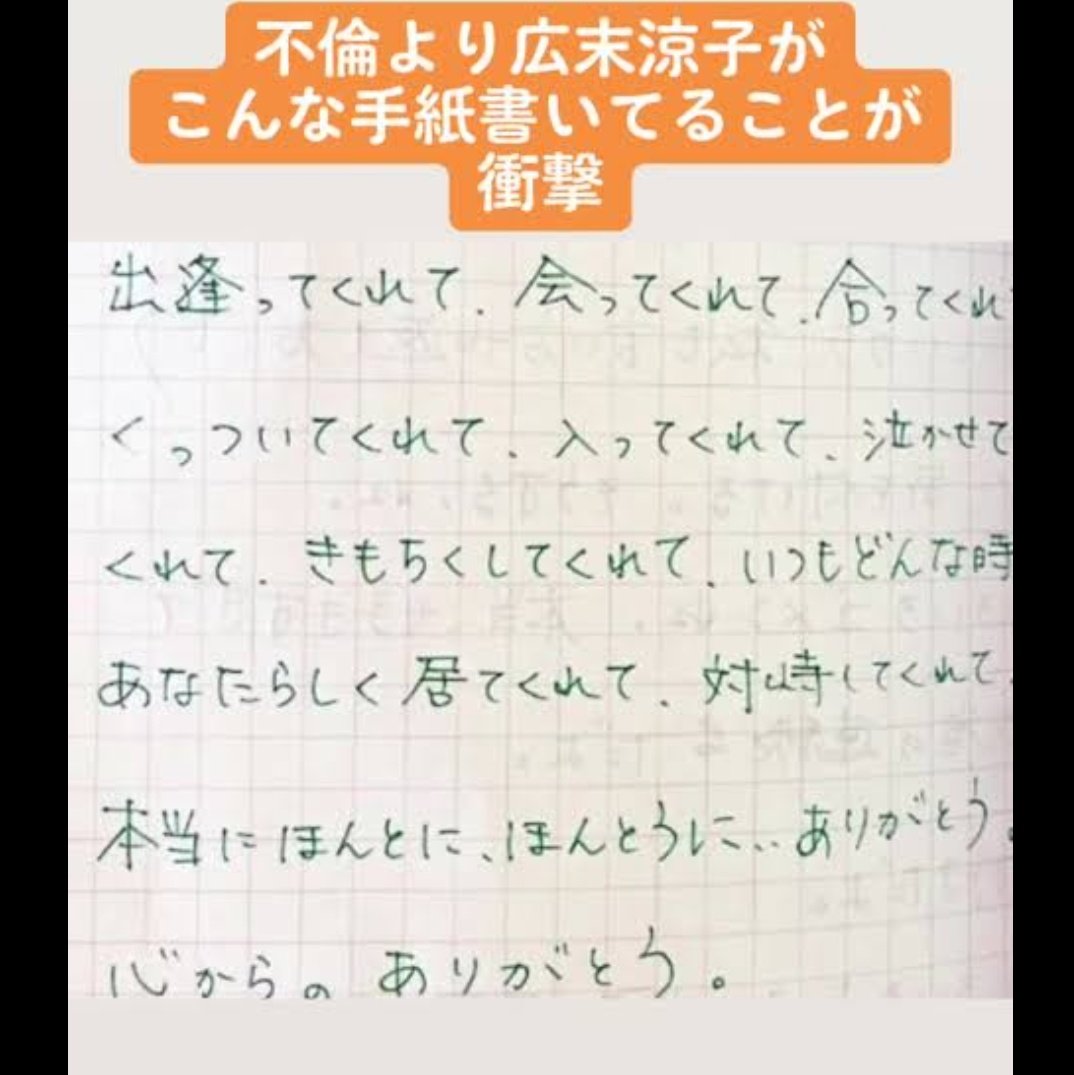 不倫より広末涼子が
こんな手紙書いてることが
衝撃
出逢ってくれて、会ってくれて、合ってくれて
くっついてくれて、入ってくれて、泣かせて
くれて、きもちくしてくれて、いつもどんな時
あなたらしく居てくれて、対峙してくれて、
本当にほんとに、ほんとうに、、ありがとう。
心から。ありがとう。